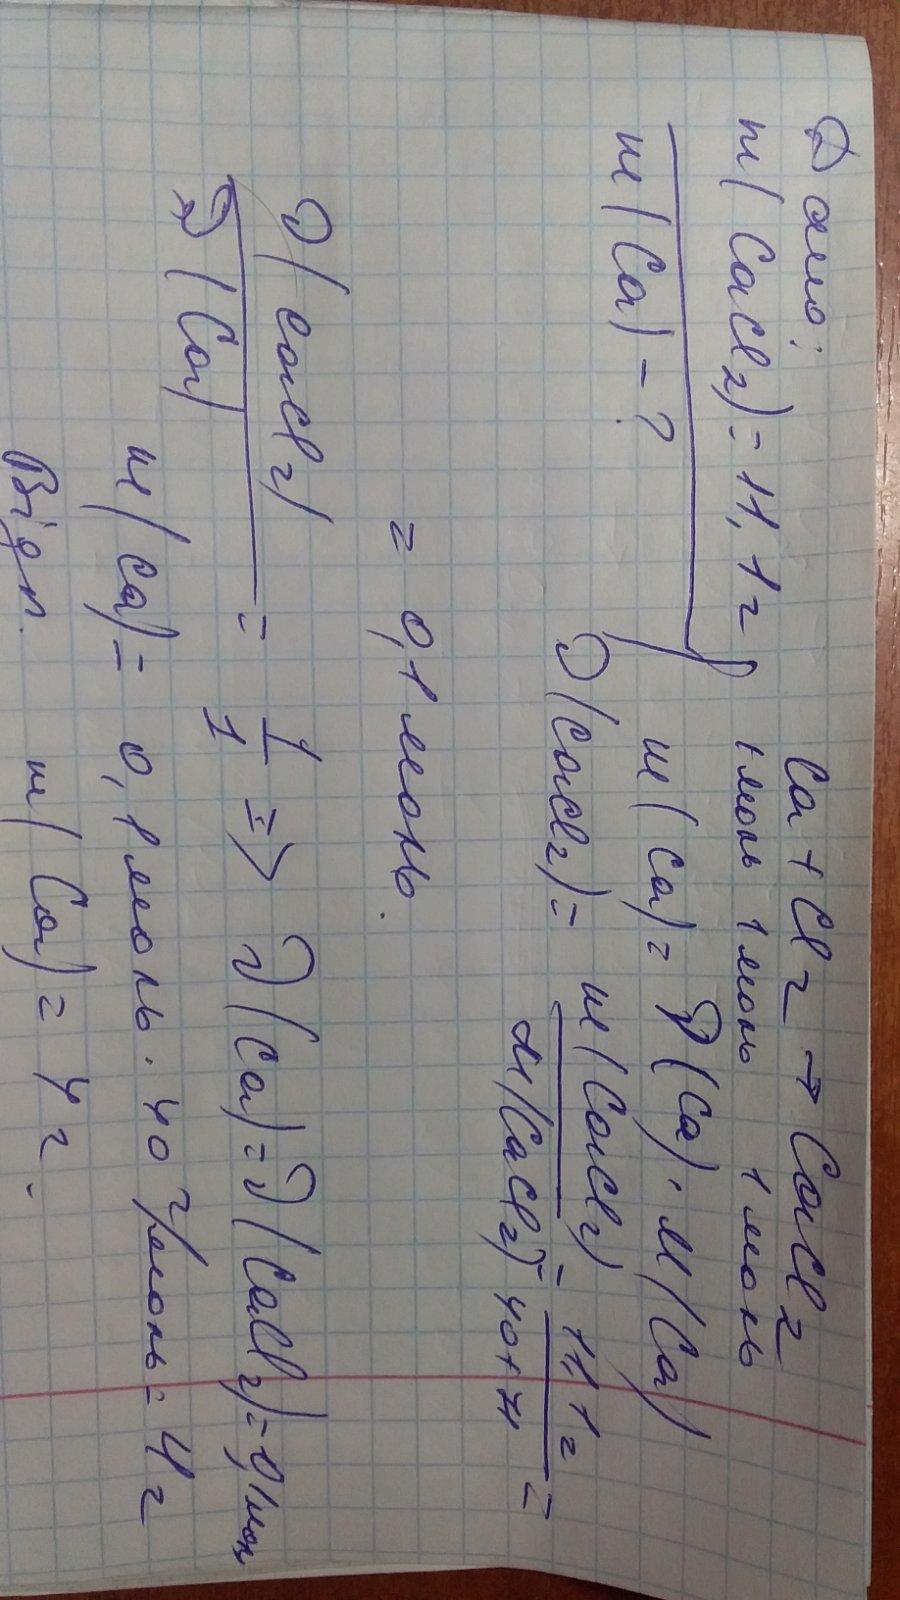 Дано:
m(CaCl2)=11,1г
m(Ca)-?
Ca+Cl2→CaCl2
1моль 1моль 1моль
m(Ca)=ν(Ca)·M(Ca)
ν(CaCl2)= m(CaCl2)/M(CaCl2) = 11,1г/40+71 =
= 0,1моль.
ν(CaCl2)/ν(Ca) = 1/1 => ν(Ca)=ν(CaCl2)=0,1мол
m(Ca)= 0,1моль·40г/моль=4г
Відп. m(Ca)=4г.